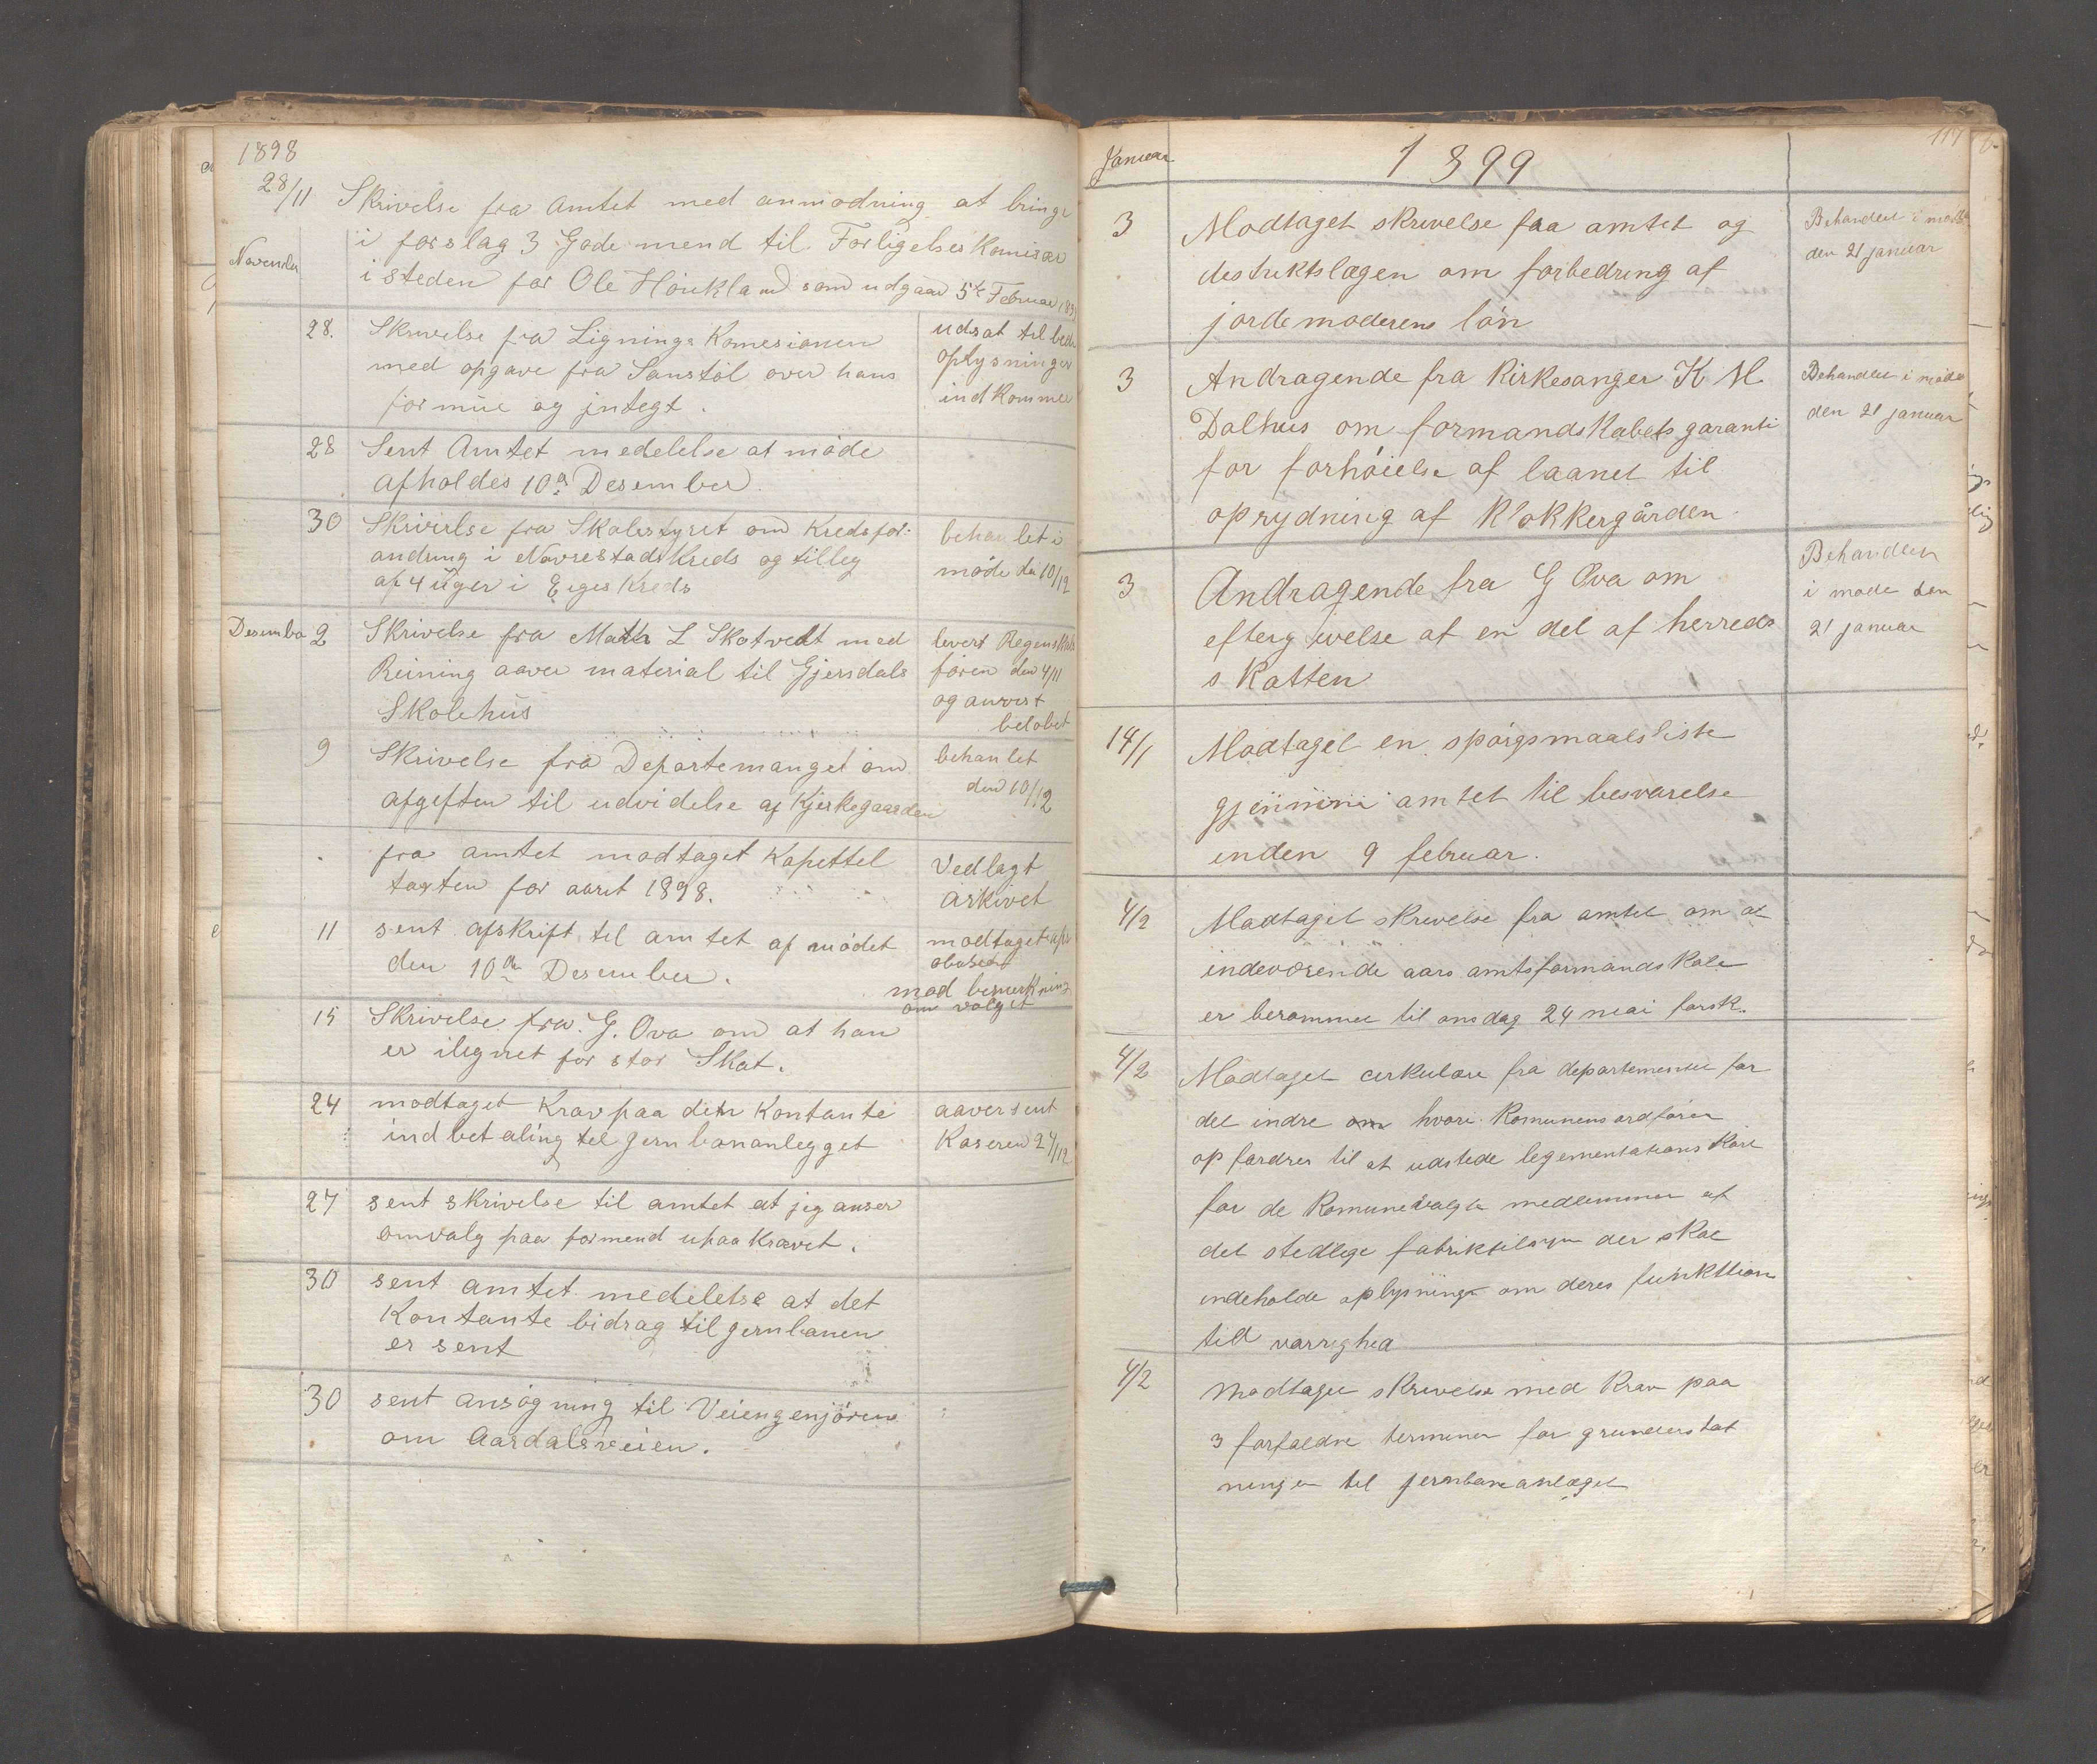 1898
28/11 Skrivelse fra Amtet med anmodning at bringe
i forslag 3 Gode mend til Forligelses Komisær
November
i steden for Ole Houkland som udgaar 5te Februar
28. Skrivelse fra Lignings Komesionen
med opgave fra Sanstøl over hans
formue og integt.
udsat til
oplysninger
indkommer
28 Sent Amtet medelelse at møde
afholdes 10de Desember.
30 Skrivelse fra Skolestyret om Kredsfor-
andring i Navrestad Kreds og tilleg
af 4 uger i Eiges Kreds
behanlet i
møde den 10/12
Desember 2 Skrivelse fra Math L Skotvedt med
Reining aaver material til Gjersdals
Skolehus
levert Regnskabs
føren den 4/11
og anvist
beløbet
9 Skrivelse fra Departemanget om
afgiften til udvidelse af Kjerkegaarden
behanlet
den 10/12
fra amtet modtaget Kapettel
taxten for aaret 1898.
Vedlagt
arkivet
11 sent afskrift til amtet af mødet
den 10de Desember.
modtaget
mod bemerkning
om valget
15 Skrivelse fra G. Ova om at han
er ilignet for stor Skat.
24 modtaget Krav paa den Kontante
indbetaling tel jernbananlegget
aaversent
Kaseren 24/12
27 sent skrivelse til amtet at jeg anser
omvalg paa formend upaakrævet.
30 sent amtet medelelse at det
Kontante bidrag til jernbanen
er sent
30 sent ansøgning til Veiengenjøren
om Aardalsveien.
117
Januar
1899
3 Modtaget skrivelse fraa amtet og
destriktslægen om forbedring af
jordemoderens løn
Behandlet i møde
den 21 januar
3 Andragende fra Kirkesanger K M
Dalhus om formandskabets garanti
for forhøielse af laanet til
oprydning af Klokkergården
Behandlet i møde
den 21 januar
3 Andragende fra G Ova om
eftergivelse af en del af herreds
skatten
Behandlet
i møde den
21 januar
14/1 Modtaget en spørgsmaalsliste
gjennem amtet til besvarelse
inden 9 februar.
4/2 Modtaget skrivelse fra amtet om at
indeværende aars amtsformandskab
er berammet til onsdag 24 mai førsk.
4/2 Modtaget cirkulære fra departementet for
det indre om hvori Komunens ordfører
opfordres til at udstede legementationskort
for de Komunevalgte medlemmer af
det stedlige fabriktilsyn der skal
indeholde oplysninger om deres funktions
tid varrighed
4/2 Modtaget skrivelse med Krav paa
3 forfaldne terminer for grunderstat
ningen til jernbaneanlæget